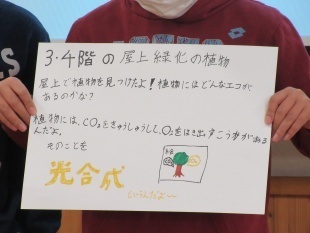 3・4階の屋上緑化の植物
屋上で植物を見つけたよ！植物にはどんなエコが
あるのかな？
植物には、CO₂をきゅうしゅうして、O₂をはき出すこう率がある
んだよ。
そのことを
光合成
というんだよ〜